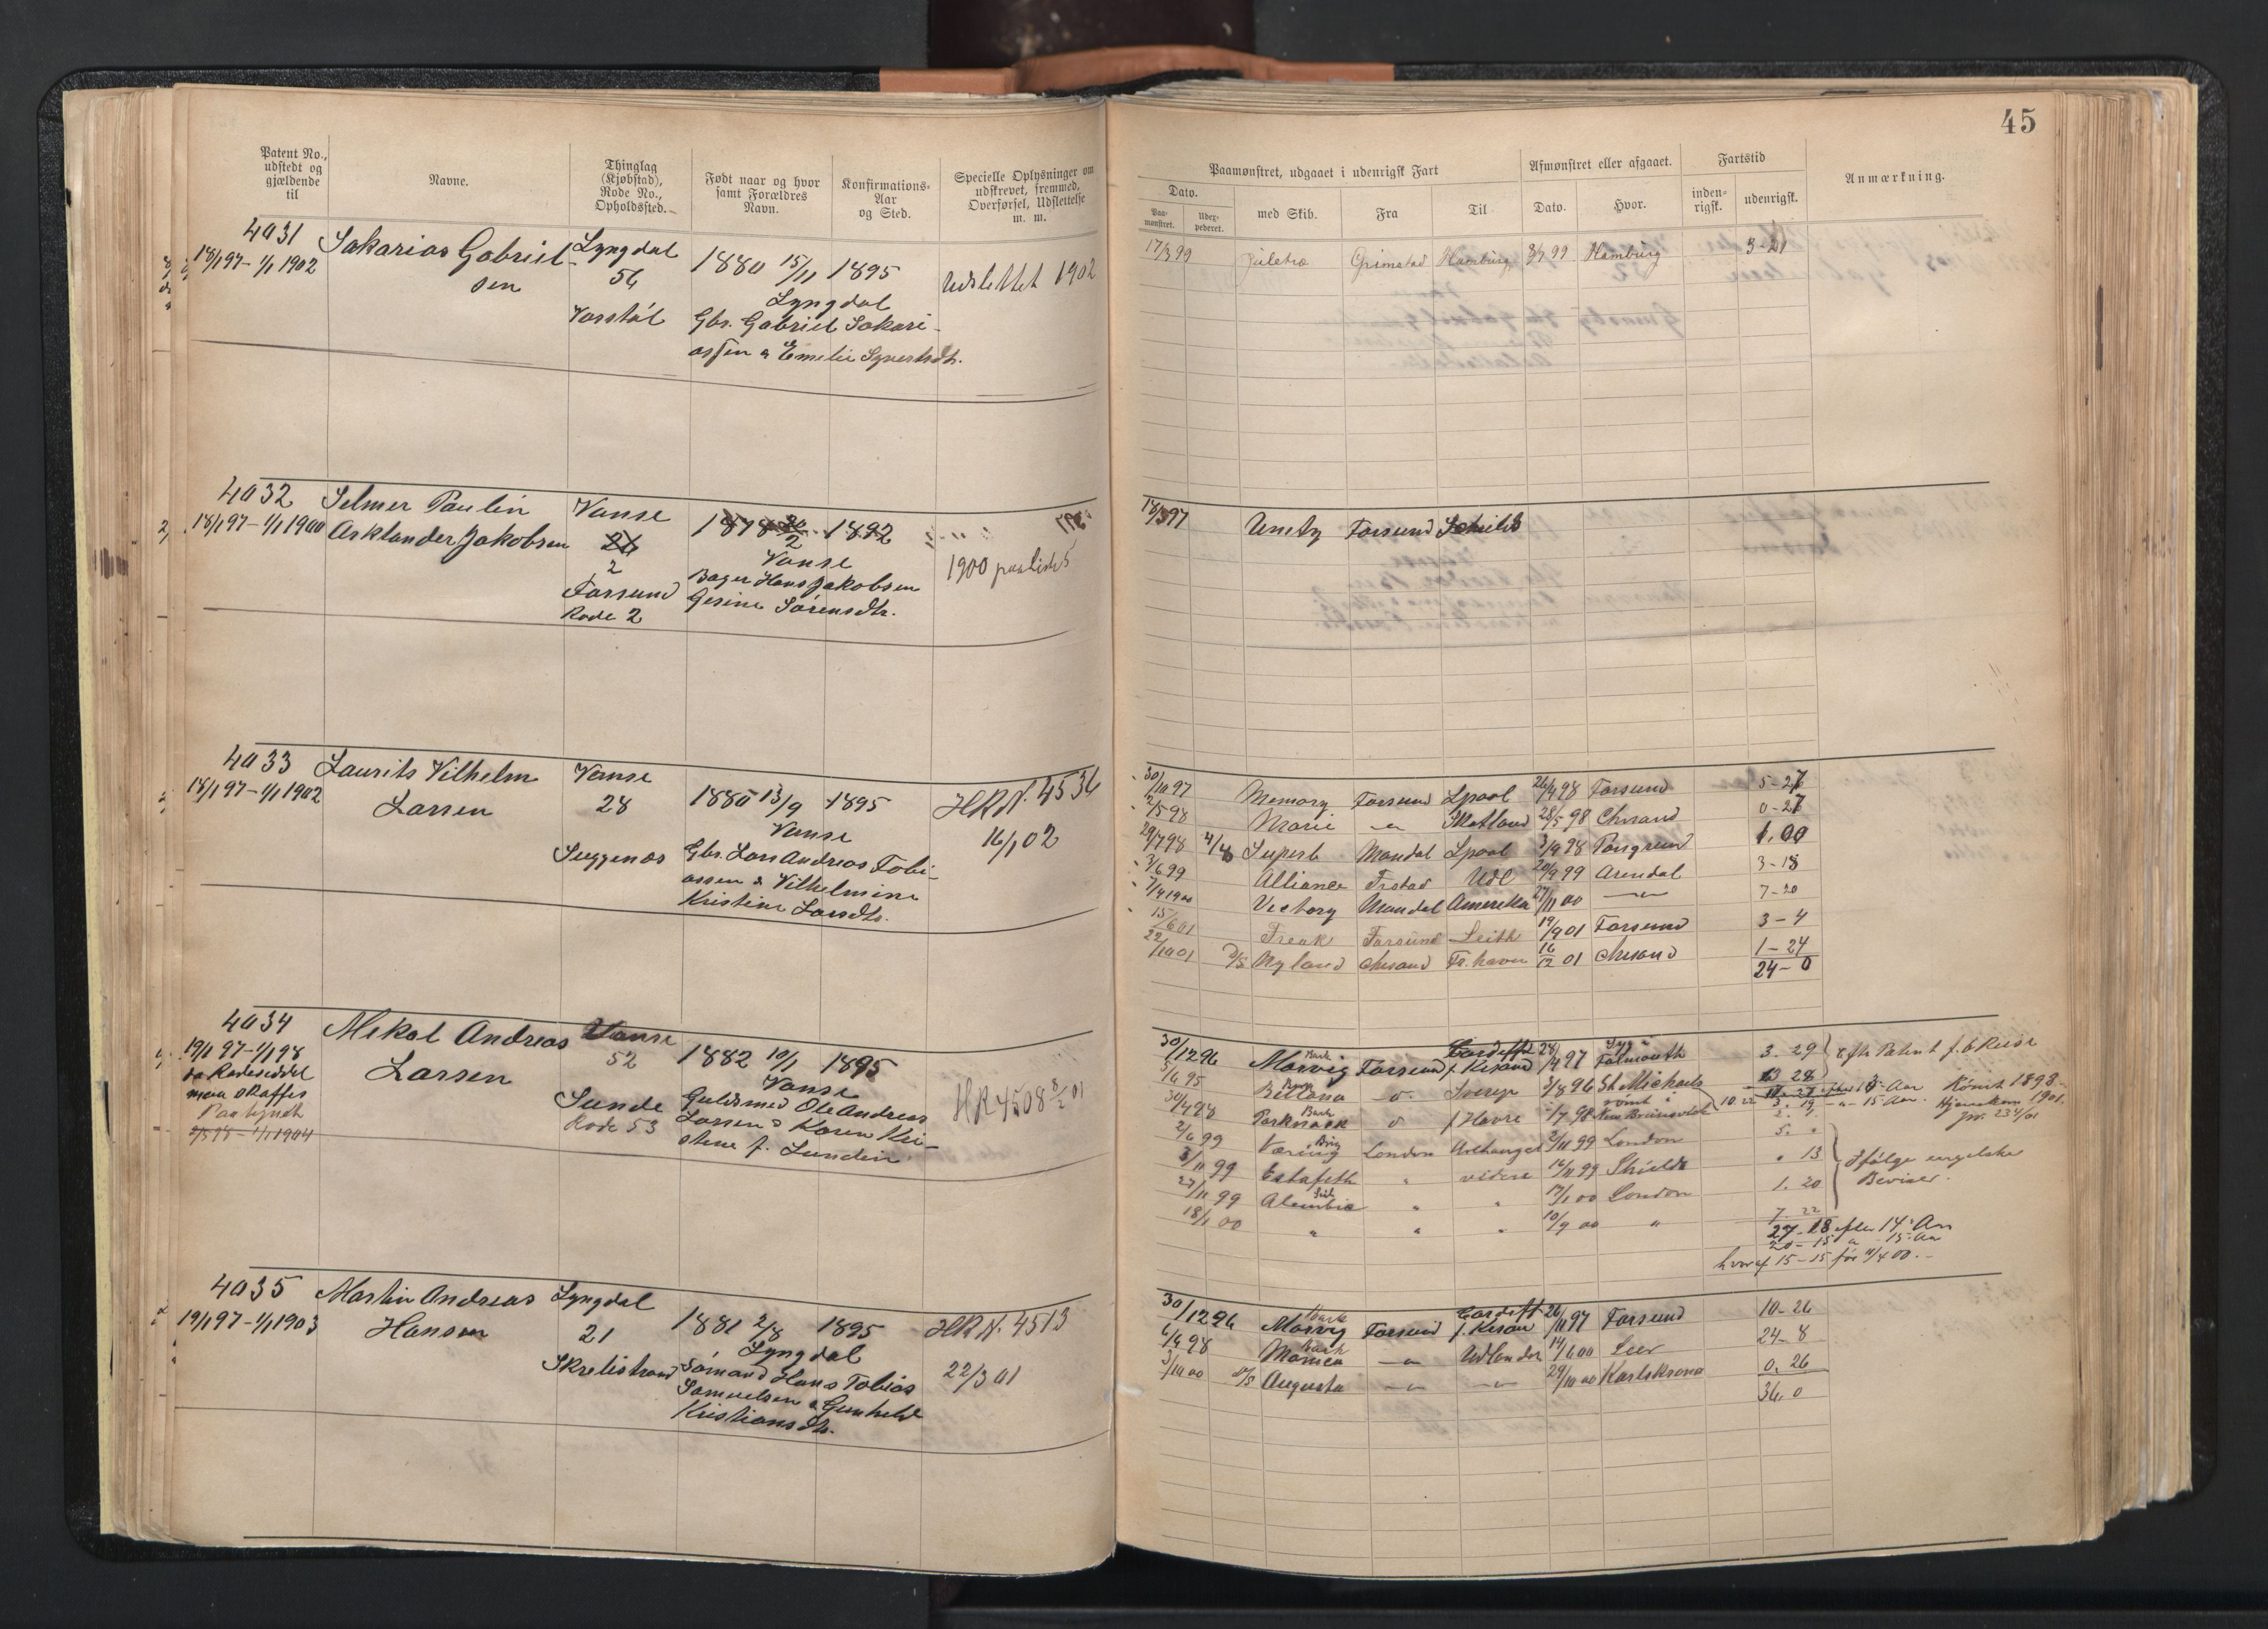 45
Patent No., udstedt og gjældende til
Navne.
Thinglag (Kjøbstad), Rode No., Opholdssted.
Født naar og hvor samt Forældres Navn.
Konfirmations-Aar og Sted.
Specielle Oplysninger om udskrevet, fremmed, Overførsel, Udslettelse m. m.
Paamønstret, udgaaet i udenrigsk Fart
Dato.
Paa-mønstret.
Uder-pederet.
med Skib.
Fra
Til
Afmønstret eller afgaaet.
Dato.
Hvor.
Fartstid
inden-rigsk.
udenrigsk.
Anmærkning.
4031
18/1 97 - 1/1 1902
Sakarias Gabriel-
sen
Lyngdal
56
1880 15/11 1895
Lyngdal
Gbr. Gabriel Sakari-
assen &
Udslettet 1902
17/3 99 Grimstad Hamburg 8/7 99 Hamburg 3-21
4032
18/1 97 - 1/1 1900
Selmer Paulin
Asklander Jakobsen
Vanse
2
Farsund
Rode 2
1878 1892
Vanse
Bager Hans Jakobsen
Gesine Sørensdtr.
1900
18/3 97 Unity Farsund
4033
18/1 97 - 1/1 1902
Laurits Vilhelm
Larsen
Vanse
28
1880 13/9 1895
Vanse
Gbr. Lars Andreas Tobi-
assen & Vilhelmine
Kristine Larsdtr.
HR N. 4536
16/1 02
30/10 97 Memory Farsund Lpool 26/4 98 Farsund 5-27
2/5 98 Marie - " - Shetland 28/5 98 Chrsand 0-27
29/7 98 4/8 Superb Mandal Lpool 3/9 98 Porsgrund 1.00
2/6 99 Alliance Frstad Udl 20/9 99 Arendal 3-18
7/4 1900 Victory Mandal Amerika 27/11 00 - " - 7-20
15/6 01 Freak Farsund Leith 19/9 01 Farsund 3-4
22/10 01 D/S Nyland Chrsand Fr.havn 16/12 01 Chrsand 1-24
24-0
4034
19/1 97 - 1/1 98
da Rodeseddel
maa skaffes
2/5 98 - 1/1 1904
Mekal Andreas
Larsen
Vanse
52
Sunde
Rode 53
1882 10/1 1895
Vanse
Guldsmed Ole Andreas
Larsen & Karen Kri-
stine f. Lunden
HR 4508 8/2 01
30/12 96 Morvig Bark Farsund Cardiff f. Krsand 28/4 97 Falmouth 3.29
Bellona 3/8 96 St Michaels 13 28
30/4 98 Bark f Havre /7 98 rømt i New Brunsvick
2/6 99 Væring Brig London Archangel 2/11 99 London 5. "
3/11 99 Estafeth " videre 16/11 99 Shields " 13
27/11 99 Alembic " " 17/1 00 London 1.20
18/1 00 " " " 10/9 00 " 7.22
Rømt 1898 -
Hjemkom 1901.
Ifølge engelske
Beviser.
27-18 efter 14 Aar
20-15 " 15 Aar
hvoraf 15-15 før 11/4 00.-
4035
19/1 97 - 1/1 1903
Martin Andreas
Hansen
Lyngdal
21
Skrelistrand
1881 2/8 1895
Lyngdal
Sømand Hans Tobias
Samuelsen & Gunhild
Kristiansdtr.
HR N. 4513
22/3 01
30/12 96 Morvig Bark Farsund Cardiff f. Krsan 26/11 97 Farsund 10-26
6/6 98 Monica Bark - " - Udlandet 14/6 00 Leer 24-8
3/10 00 D/S Augusta - " - - " - 29/10 00 Karlskrona 0.26
36.0